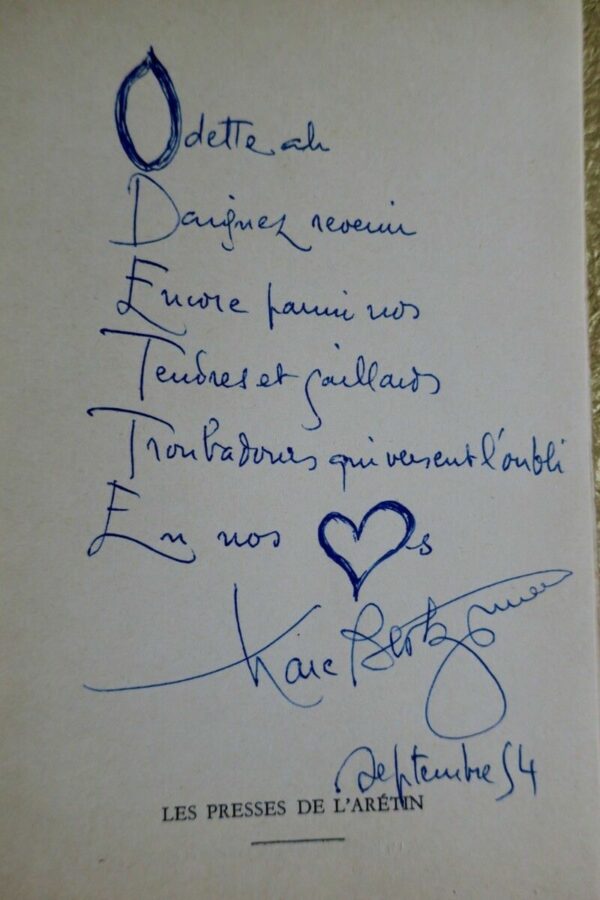 Odette ah
Daignez revenir
Encore parmi nos
Tendres et gaillards
Troubadours qui versent l'oubli
En nos ♥s
septembre 54
LES PRESSES DE L'ARÉTIN